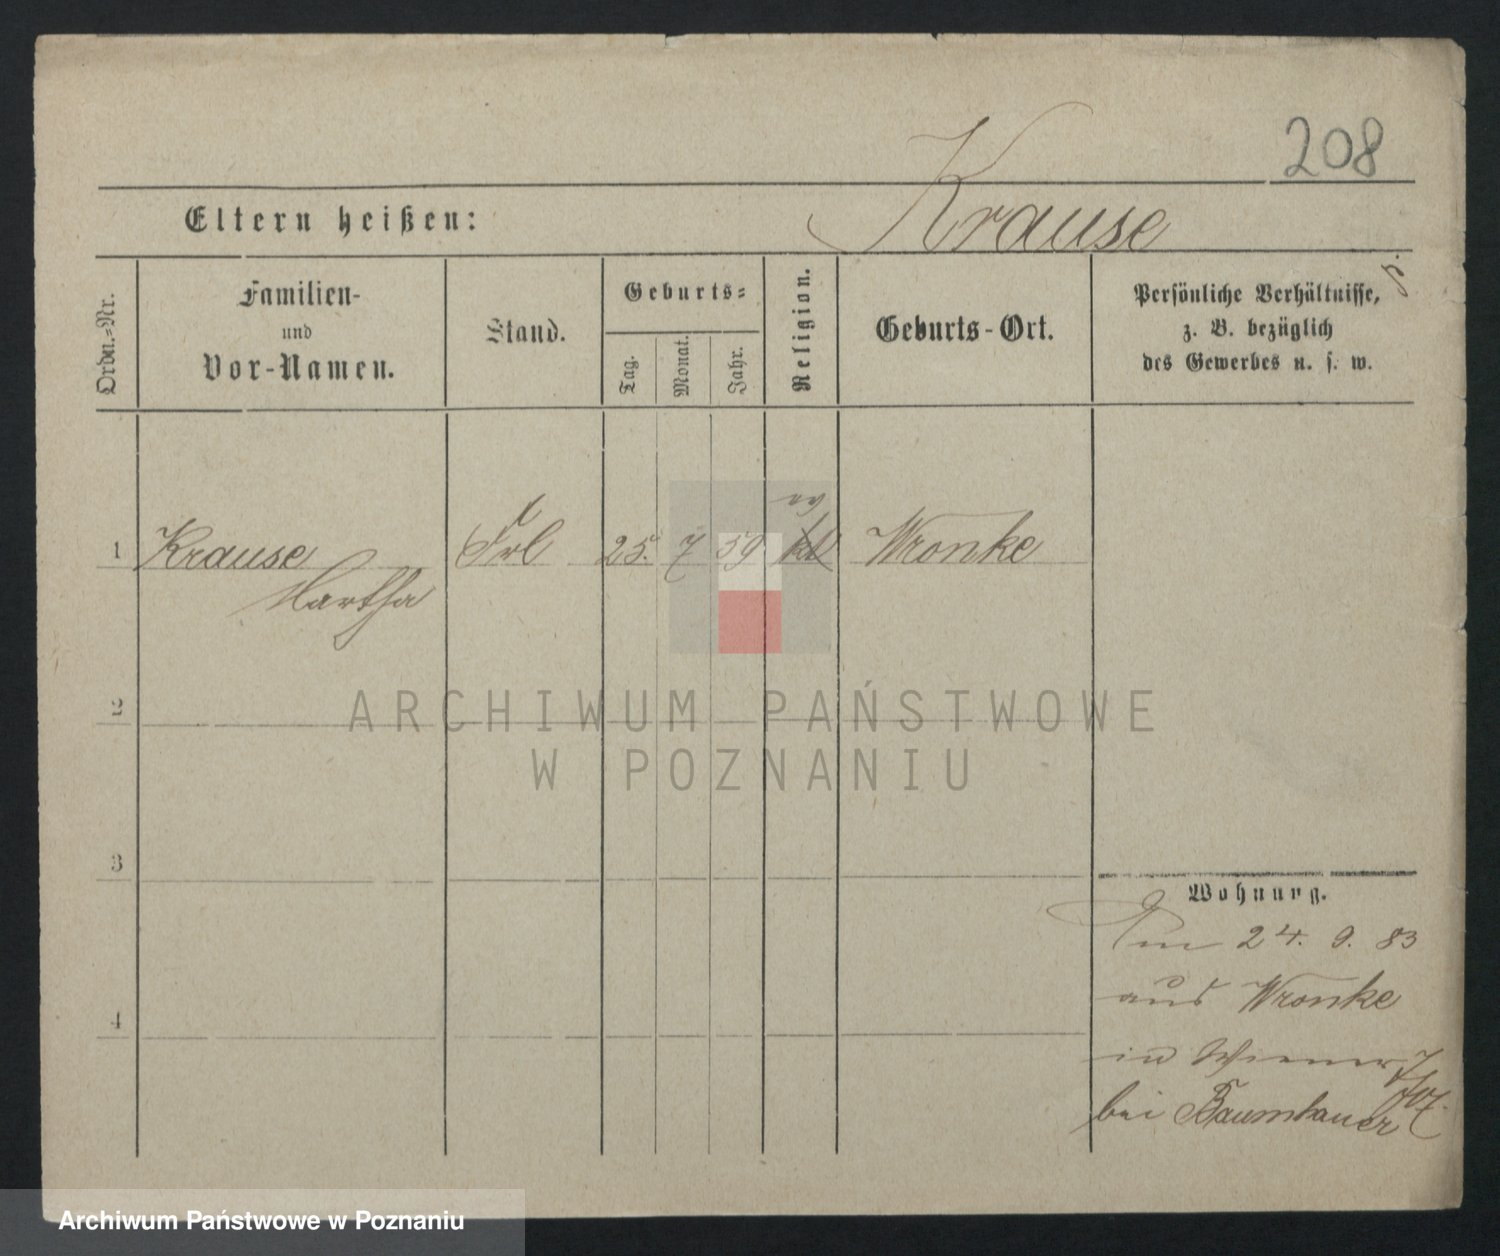 208
Eltern heißen: Krause
Ordn.-Nr.
Familien-
und
Vor-Namen.
Stand.
Geburts-
Tag.
Monat.
Jahr.
Religion.
Geburts-Ort.
Persönliche Verhältnisse,
z. B. bezüglich
des Gewerbes u. s. w.
ev
1 Krause Frl 25. 7 59 kt Wronke
Martha
2
ARCHIWUM PAŃSTWOWE
W POZNANIU
3
Wohnung.
Am 24. 9. 83
aus Wronke
4
in Wiener
bei Baumhauer
Archiwum Państwowe w Poznaniu